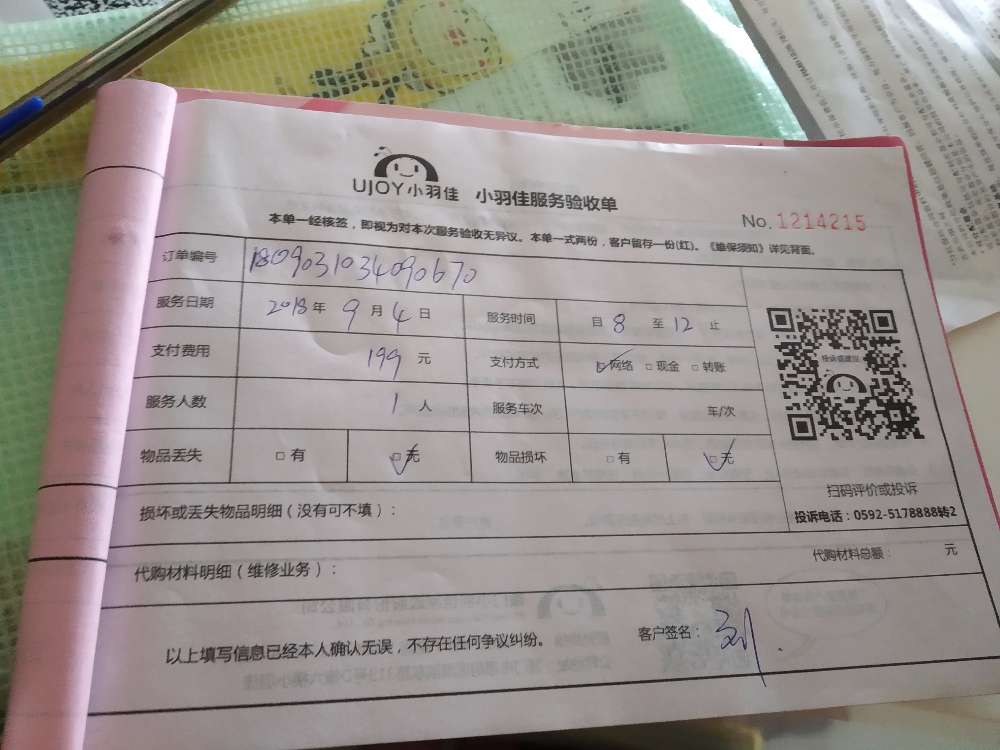 UJOY小羽佳 小羽佳服务验收单
No. 1214215
本单一经核签，即视为对本次服务验收无异议。本单一式两份，客户留存一份(红)。《维保须知》详见背面。
订单编号 1809031034090670
服务日期 2018年 9 月 4 日 服务时间 自 8 至 12 止
支付费用 199 元 支付方式 ☑网络 □现金 □转账
服务人数 1 人 服务车次 车/次
物品丢失 □有 ☑无 物品损坏 □有 ☑无
扫码评价或投诉
投诉电话：0592-5178888转2
损坏或丢失物品明细（没有可不填）：
代购材料明细（维修业务）： 代购材料总额： 元
以上填写信息已经本人确认无误，不存在任何争议纠纷。 客户签名：